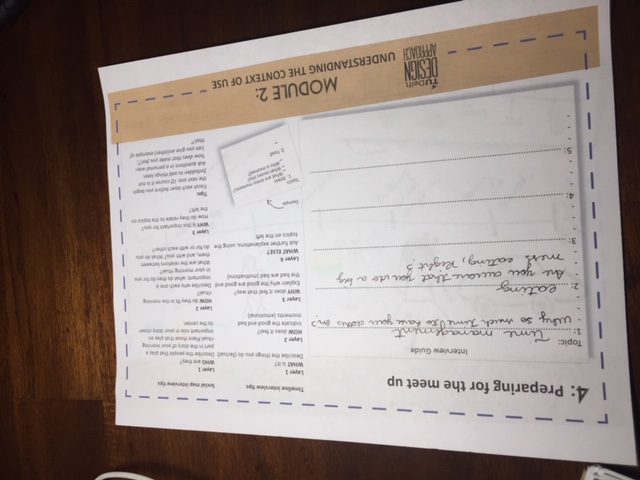 4: Preparing for the meet up
Interview Guide
Topic:
1: Time management
- Why so much time to have your clothes on?
-
2: eating
- Are you aware that you do a big
- mess eating, Right?
3:
-
-
4:
-
-
5:
-
-
Timeline interview tips
Layer 1
WHAT is it?
Describe the things you do (factual)
Layer 2
HOW does it feel?
Indicate the good and bad
moments (emotional)
Layer 3
WHY does it feel that way?
Explain why the good are good and
the bad are bad (motivations)
Layer 4
WHAT ELSE?
Ask further explanations, using the
topics on the left
Example
Social map interview tips
Layer 1
WHO are they?
Describe the people that play a
part in the story of your morning
ritual. Place those that play an
important role in your story closer
to the center.
Layer 2
HOW do they fit in the morning
ritual?
Describe why each one is
important: what do they do for you
in your morning ritual?
What are the relations between
them, and with you? What do you
do for or with each other?
Layer 3
WHY is this important for you?
How do these relate to the topics on
the left?
Tips:
Finish each layer before you begin
the next one. Of course it is not
forbidden to add things later.
Ask questions in a personal way:
'how does that make you feel?',
'can you give an(other) example of
that?'
YUPAIN
DESIGN
APPROACH
MODULE 2:
UNDERSTANDING THE CONTEXT OF USE